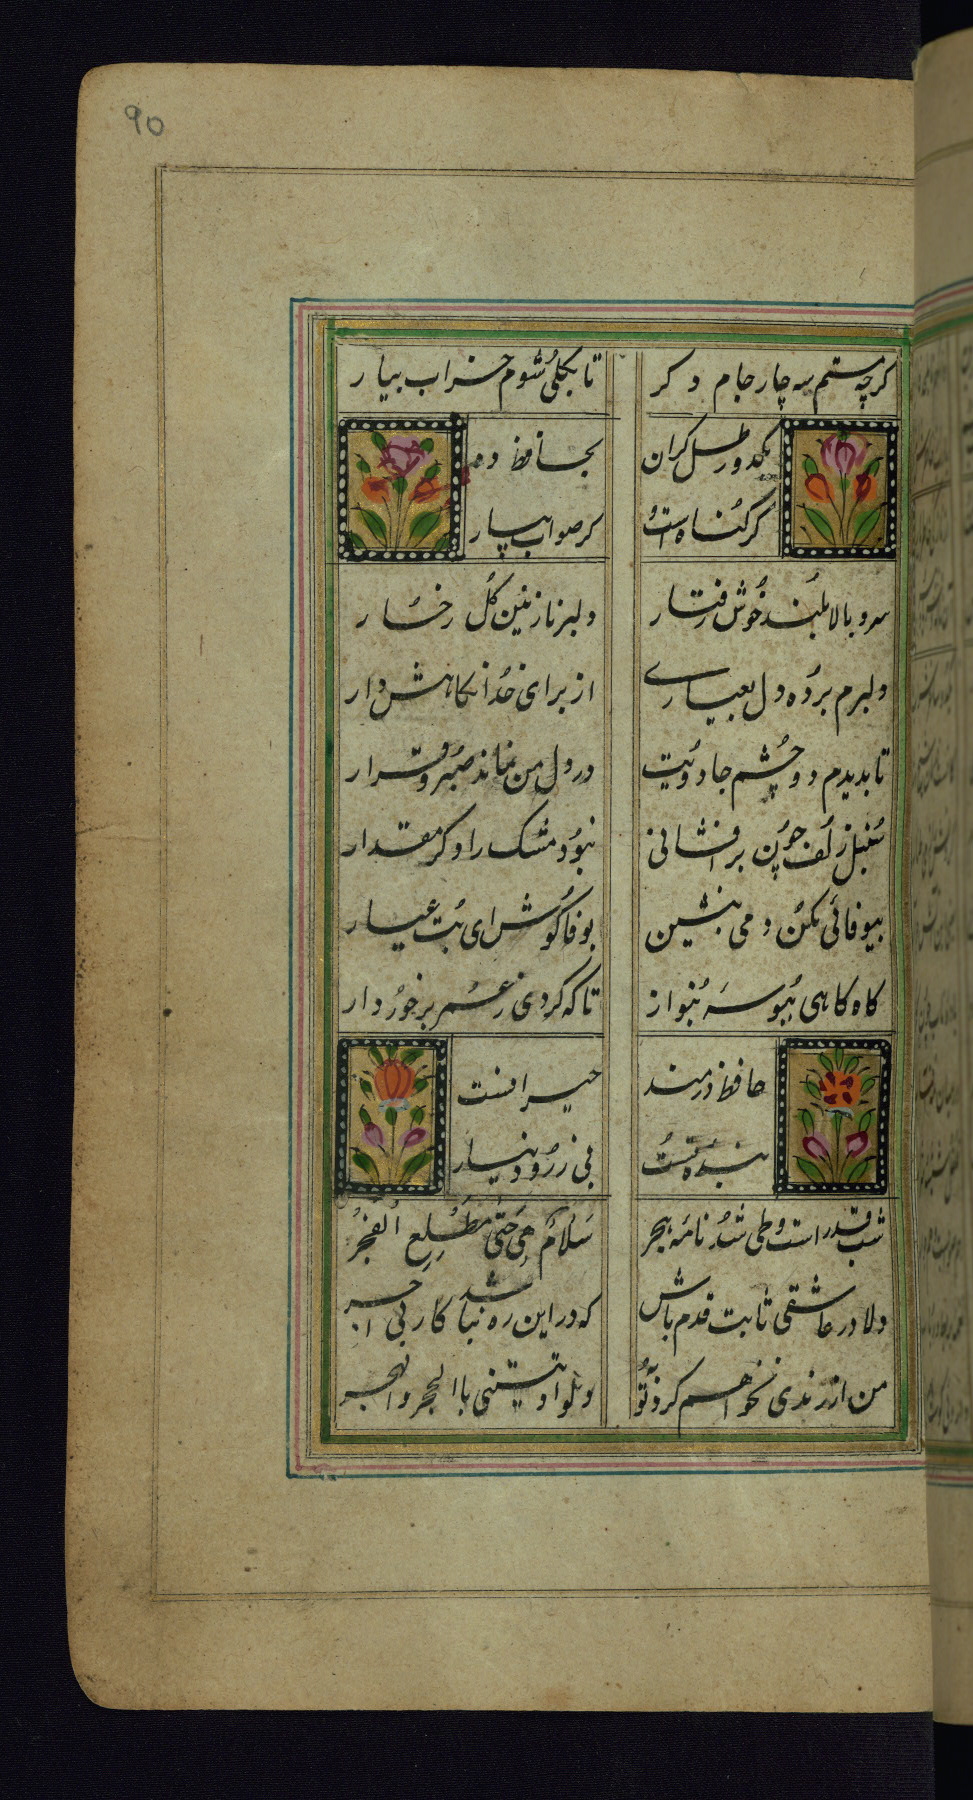 90
کرچه مستم سه چار جام دکر
تا بکلی شوم خراب بیار
یکدو رطل کران
بحافظ ده
کر کناه است
کر صواب بیار
سرو بالا بلند خوش رفتار
دلبر نازنین کل رخسار
دلبرم برده دل بعیاری
از برای خدا نکاهش دار
تا بدیدم دو چشم جادویت
در دل من نماند صبر و قرار
سنبل زلف چون برافشانی
نبود مشک را دکر مقدار
بیوفائی مکن دمی بنشین
بوفا کوش ای بت عیار
کاه کاهی ببوسه بنواز
تا که کردی ز عمر برخوردار
حافظ درمند
حیرانست
بنده تست
بی زر و دینار
شب قدر است و طی شد نامه هجر
سلام هی حتی مطلع الفجر
دلا در عاشقی ثابت قدم باش
که در این ره نباشد کار بی اجر
من از رندی نخواهم کرد توبه
ولو اوتیتنی باالحجر والهجر